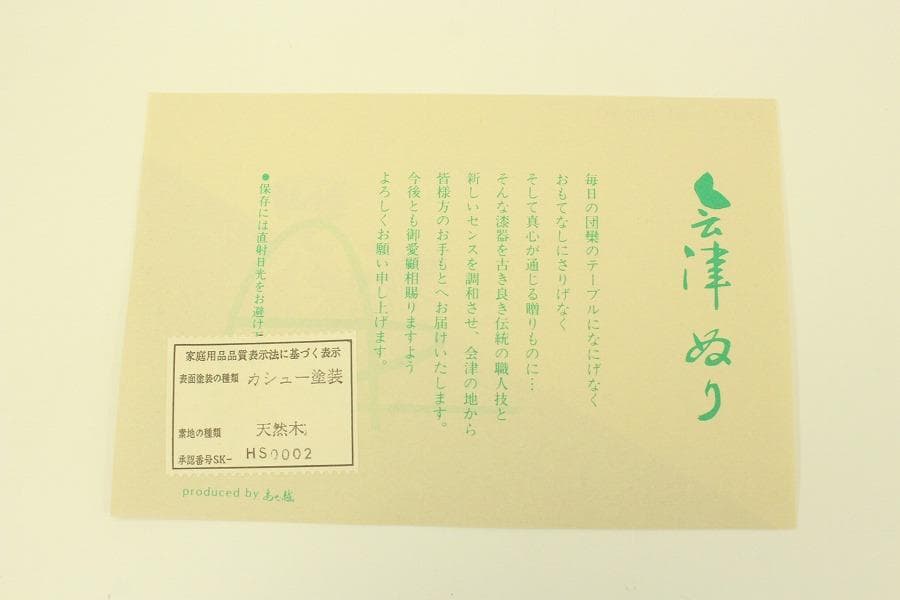 会津ぬり
毎日の団欒のテーブルになにげなく
おもてなしにさりげなく
そして真心が通じる贈りものに…
そんな漆器を古き良き伝統の職人技と
新しいセンスを調和させ、会津の地から
皆様方のお手もとへお届けいたします。
今後とも御愛顧相賜りますよう
よろしくお願い申し上げます。
●保存には直射日光をお避け
家庭用品品質表示法に基づく表示
表面塗装の種類 カシュー塗装
素地の種類 天然木
承認番号SK- HS0002
produced by